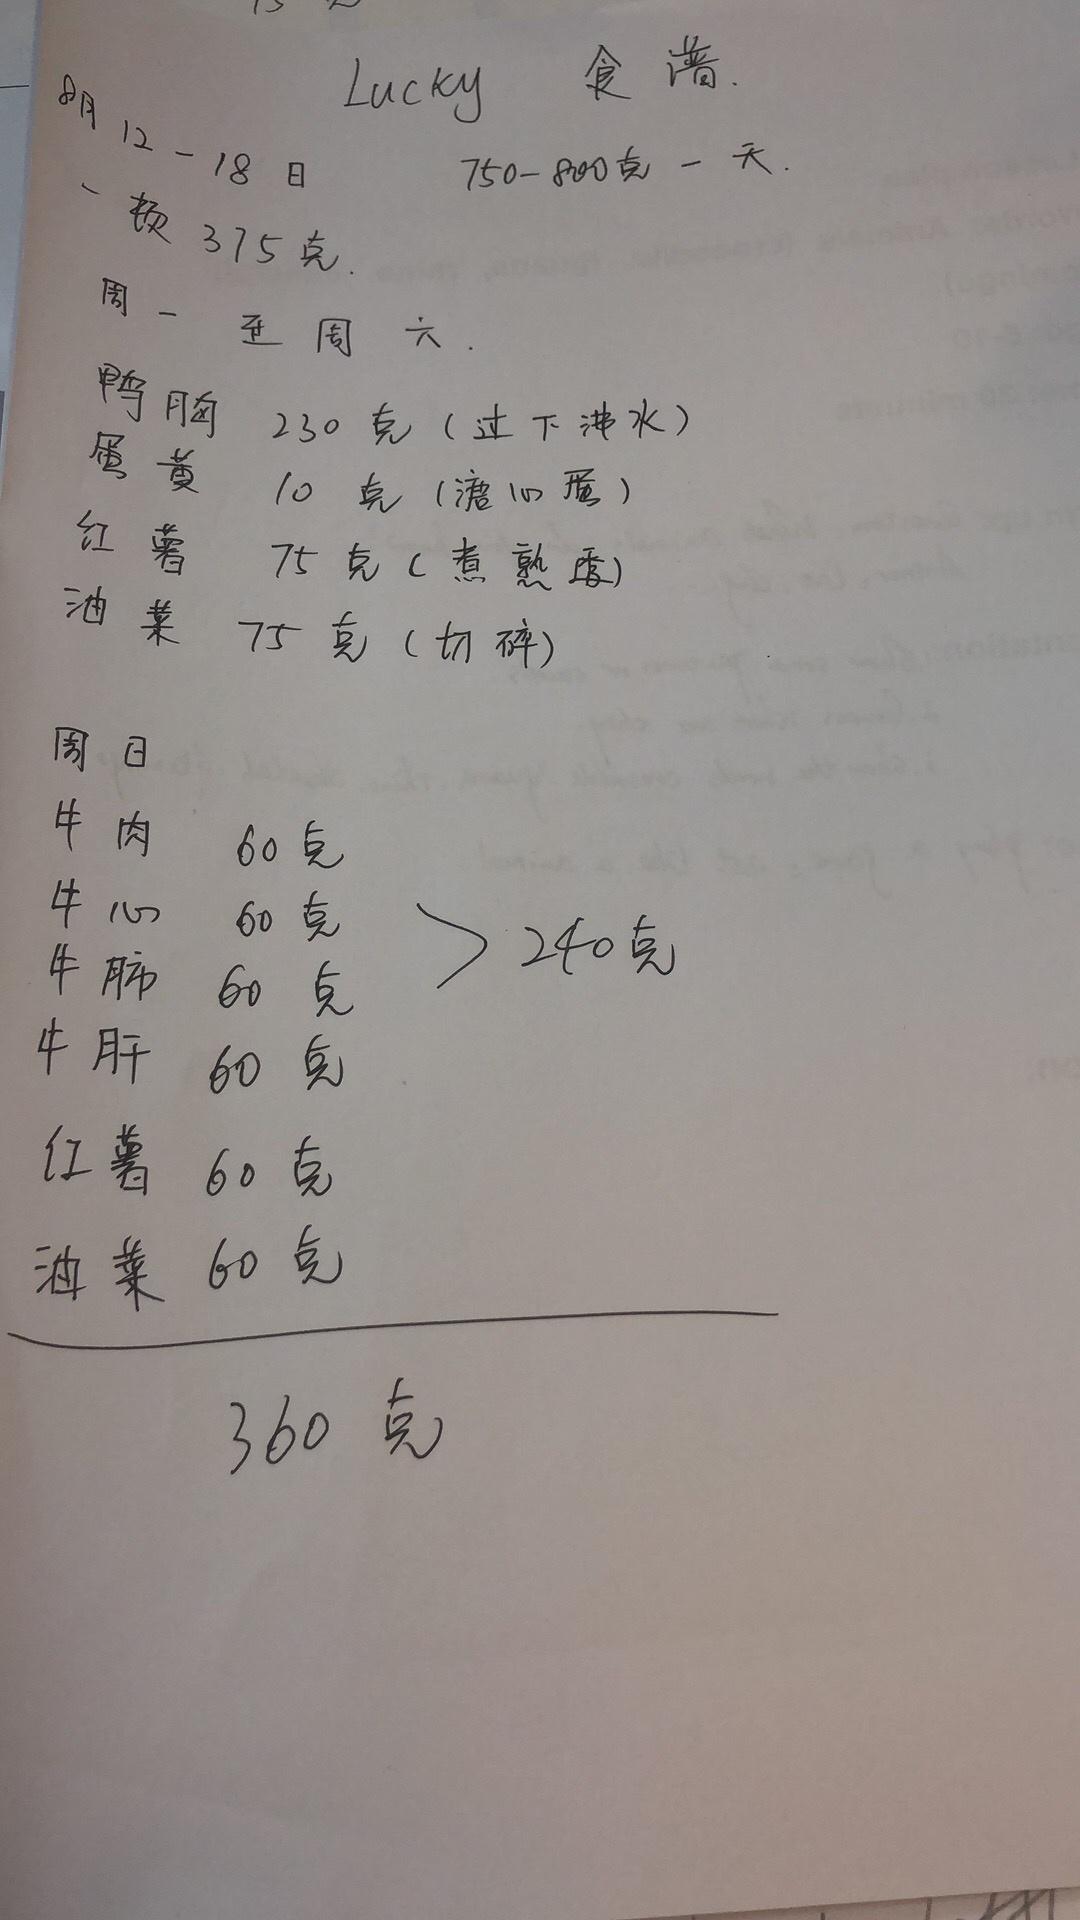 Lucky 食谱.
8月12-18日 750-800克一天.
一顿375克.
周一至周六.
鸭胸 230克(过下沸水)
蛋黄 10克(溏心蛋)
红薯 75克(煮熟蛋)
油菜 75克(切碎)
周日
牛肉 60克
牛心 60克
> 240克
牛肺 60克
牛肝 60克
红薯 60克
油菜 60克
360克